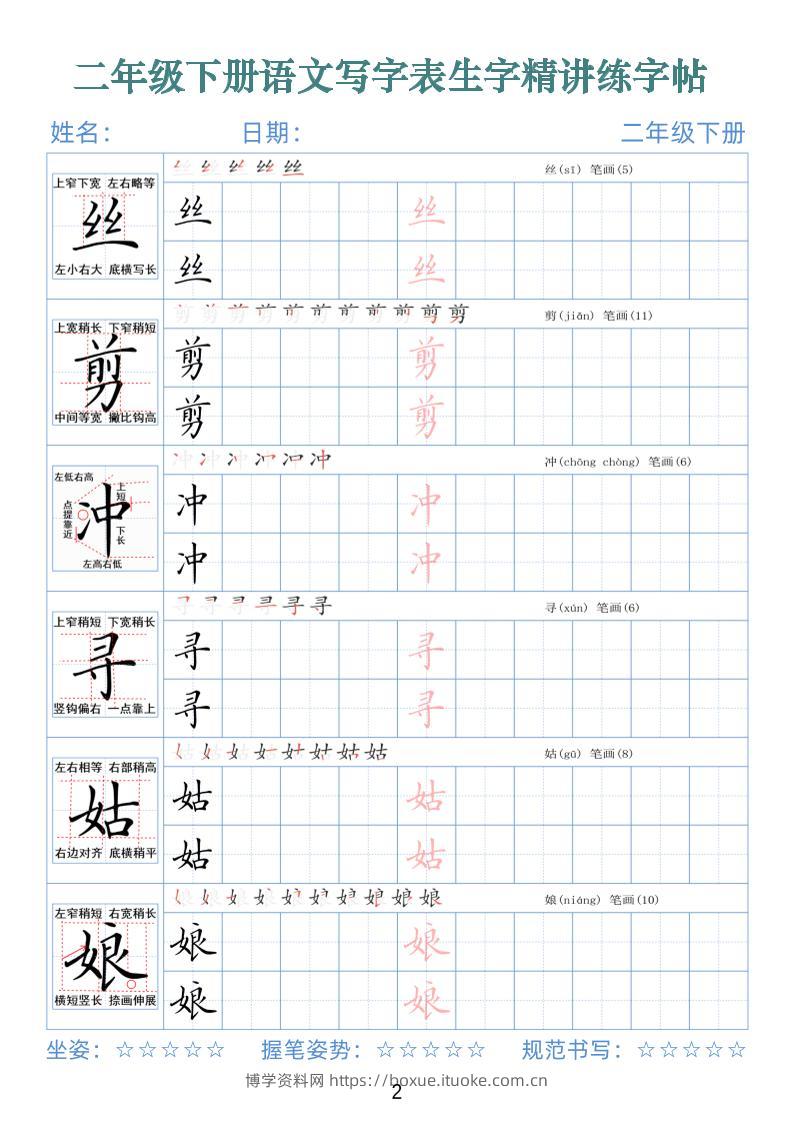 二年级下册语文写字表生字精讲练字帖
姓名： 日期： 二年级下册
丝(sī) 笔画(5)
上窄下宽 左右略等
丝 丝 丝
左小右大 底横写长
丝 丝
剪(jiǎn) 笔画(11)
上宽稍长 下窄稍短
剪 剪 剪
中间等宽 撇比钩高
剪 剪
冲(chōng chòng) 笔画(6)
左低右高
上短
点提靠近
冲 冲 冲
下长
左高右低
冲 冲
寻(xún) 笔画(6)
上窄稍短 下宽稍长
寻 寻 寻
竖钩偏右 一点靠上
寻 寻
姑(gū) 笔画(8)
左右相等 右部稍高
姑 姑 姑
右边对齐 底横稍平
姑 姑
娘(niáng) 笔画(10)
左窄稍短 右宽稍长
娘 娘 娘
横短竖长 捺画伸展
娘 娘
坐姿：☆☆☆☆☆ 握笔姿势：☆☆☆☆☆ 规范书写：☆☆☆☆☆
博学资料网 https://boxue.ituoke.com.cn
2